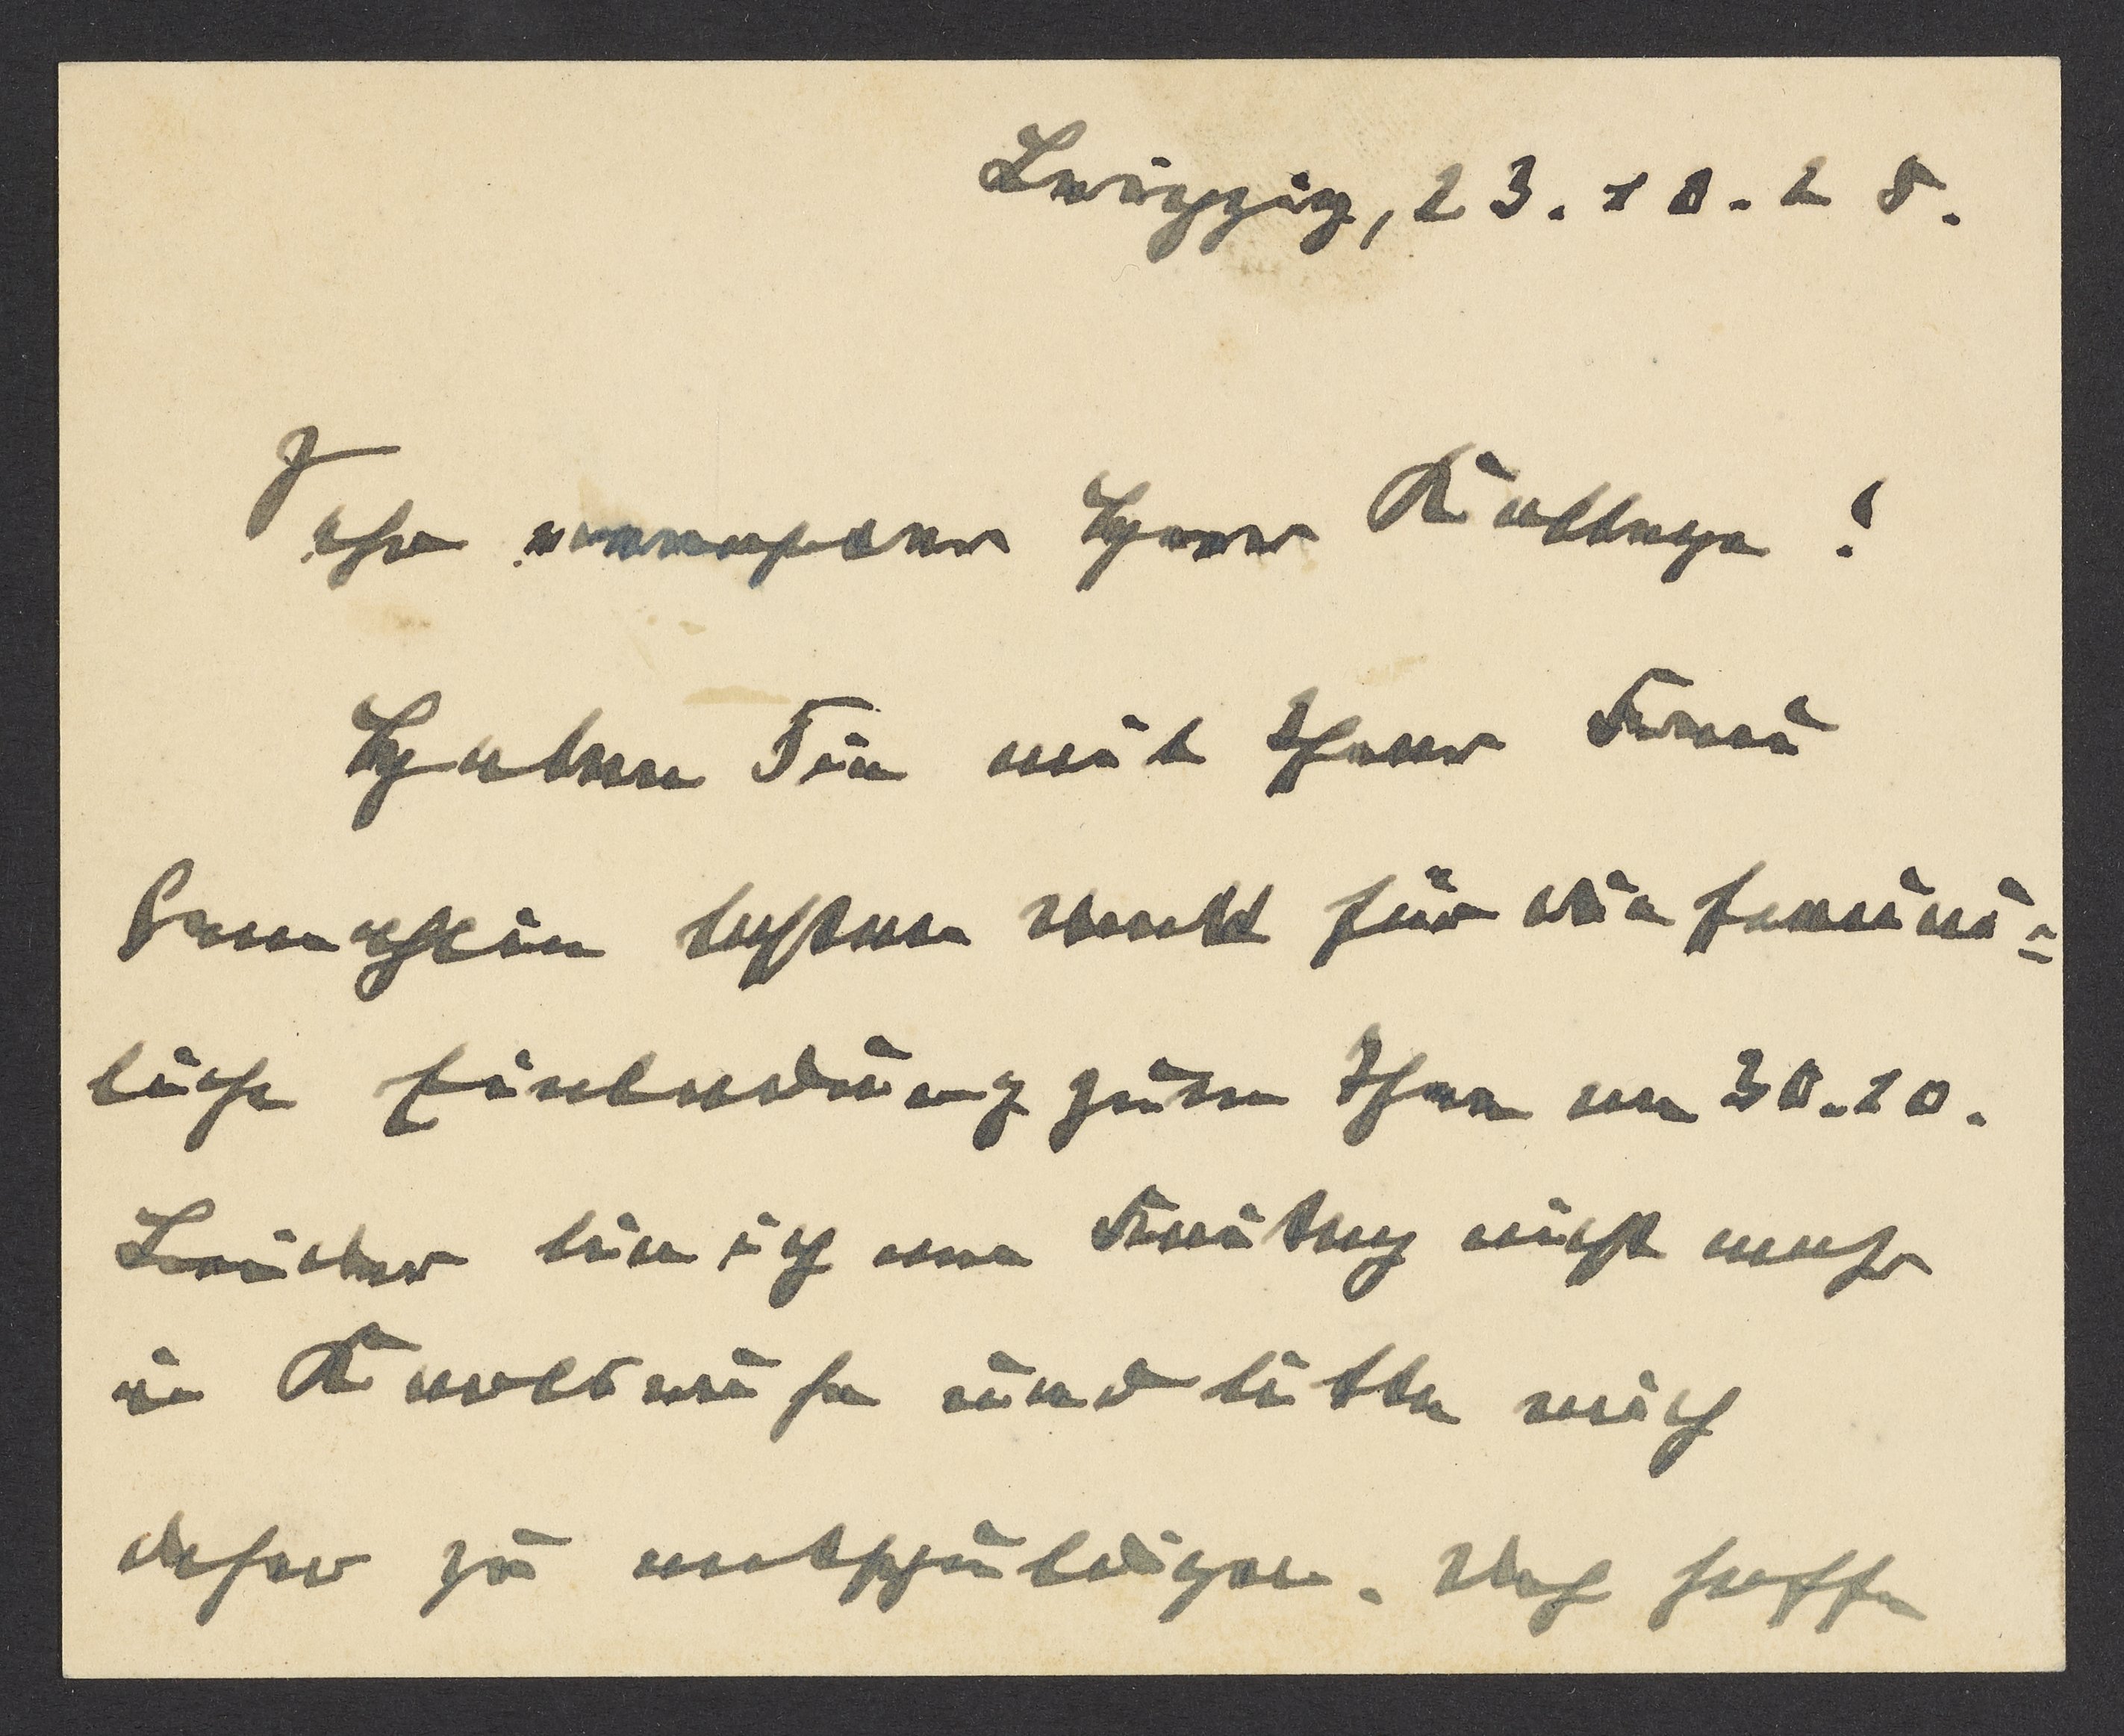 Leipzig, 23.10.28.
Sehr verehrter Herr Kollege!
Haben Sie mit Ihrer Frau
Gemahlin besten Dank für die freund=
liche Einladung zum Thee am 30.10.
Leider bin ich am Freitag nicht mehr
in Karlsruhe und bitte mich
daher zu entschuldigen. Doch hoffe